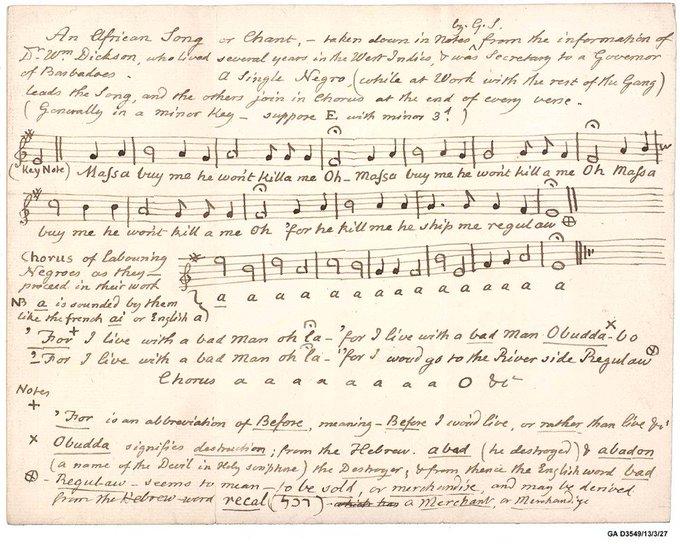 by G.S.
An African Song or Chant, – taken down in Notes from the information of
Dr Wm Dickson, who lived several years in the West Indies, & was Secretary to a Governor
of Barbadoes. A Single Negro, (while at Work with the rest of the Gang)
leads the Song, and the others join in Chorus at the end of every verse.
(Generally in a minor Key – suppose E with minor 3d.)
(Key Note) Massa buy me he won't killa me Oh – Massa buy me he won't kill a me Oh Massa
buy me he won't kill a me Oh 'for he kill me he ship me regulaw ⊕
Chorus of Labouring
Negroes as they –
proceed in their work
NB a is sounded by them
like the french ai or English a)
a a a a a a a a a a a a a
'For+ I live with a bad Man oh la – 'for I live with a bad Man Obudda x – bo
'For I live with a bad man oh la – 'for I wou'd go to the River side Regulaw ⊗
Chorus a a a a a a a a O &c
Notes
+ 'For is an abbreviation of Before, meaning – Before I wou'd live, or rather than live &c
x Obudda signifies destruction; from the Hebrew. abad (he destroyed) & abadon
(a name of the Devil in Holy scripture) the Destroyer; & from thence the English word bad
⊗ – Regulaw – seems to mean – to be sold, or merchandise, and may be derived
from the Hebrew word recal (רכל) – which has a Merchant, or Merchandize
GA D3549/13/3/27